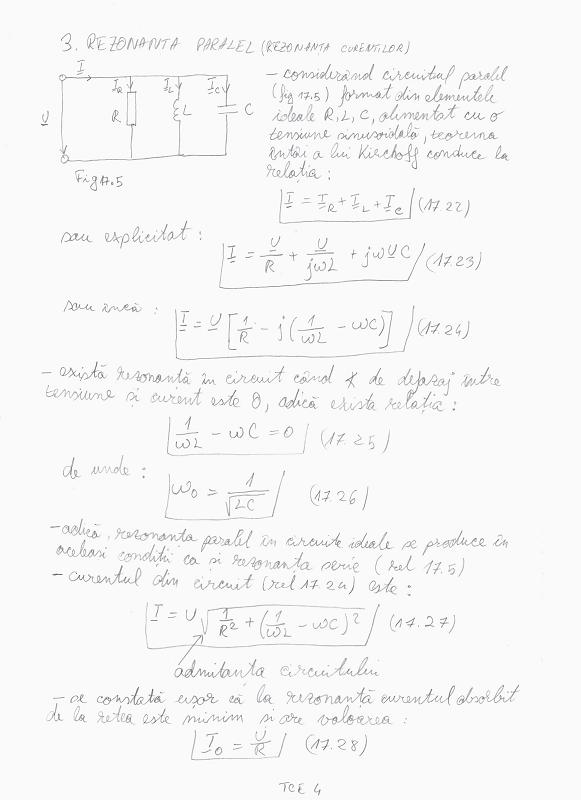 3. REZONANTA PARALEL (REZONANTA CURENTILOR)
I
I_R I_L I_C
U R L C
Fig 17.5
- considerând circuitul paralel
(fig 17.5) format din elementele
ideale R, L, C, alimentat cu o
tensiune sinusoidală, teorema
întâi a lui Kirchoff conduce la
relația:
I = I_R + I_L + I_C (17.22)
sau explicitat:
I = U/R + U/jωL + jωUC (17.23)
sau încă:
I = U [1/R - j(1/ωL - ωC)] (17.24)
- există rezonantă în circuit când ∢ de defazaj între
tensiune și curent este 0, adică exista relația:
1/ωL - ωC = 0 (17.25)
de unde:
ω₀ = 1/√LC (17.26)
- adică, rezonanta paralel în circuite ideale se produce în
aceleasi condiții ca si rezonanța serie (rel 17.5)
- curentul din circuit (rel 17.24) este:
I = U √(1/R² + (1/ωL - ωC)²) (17.27)
admitanta circuitului
- se constată ușor că la rezonanță curentul absorbit
de la retea este minim și are valoarea:
I₀ = U/R (17.28)
TCE 4